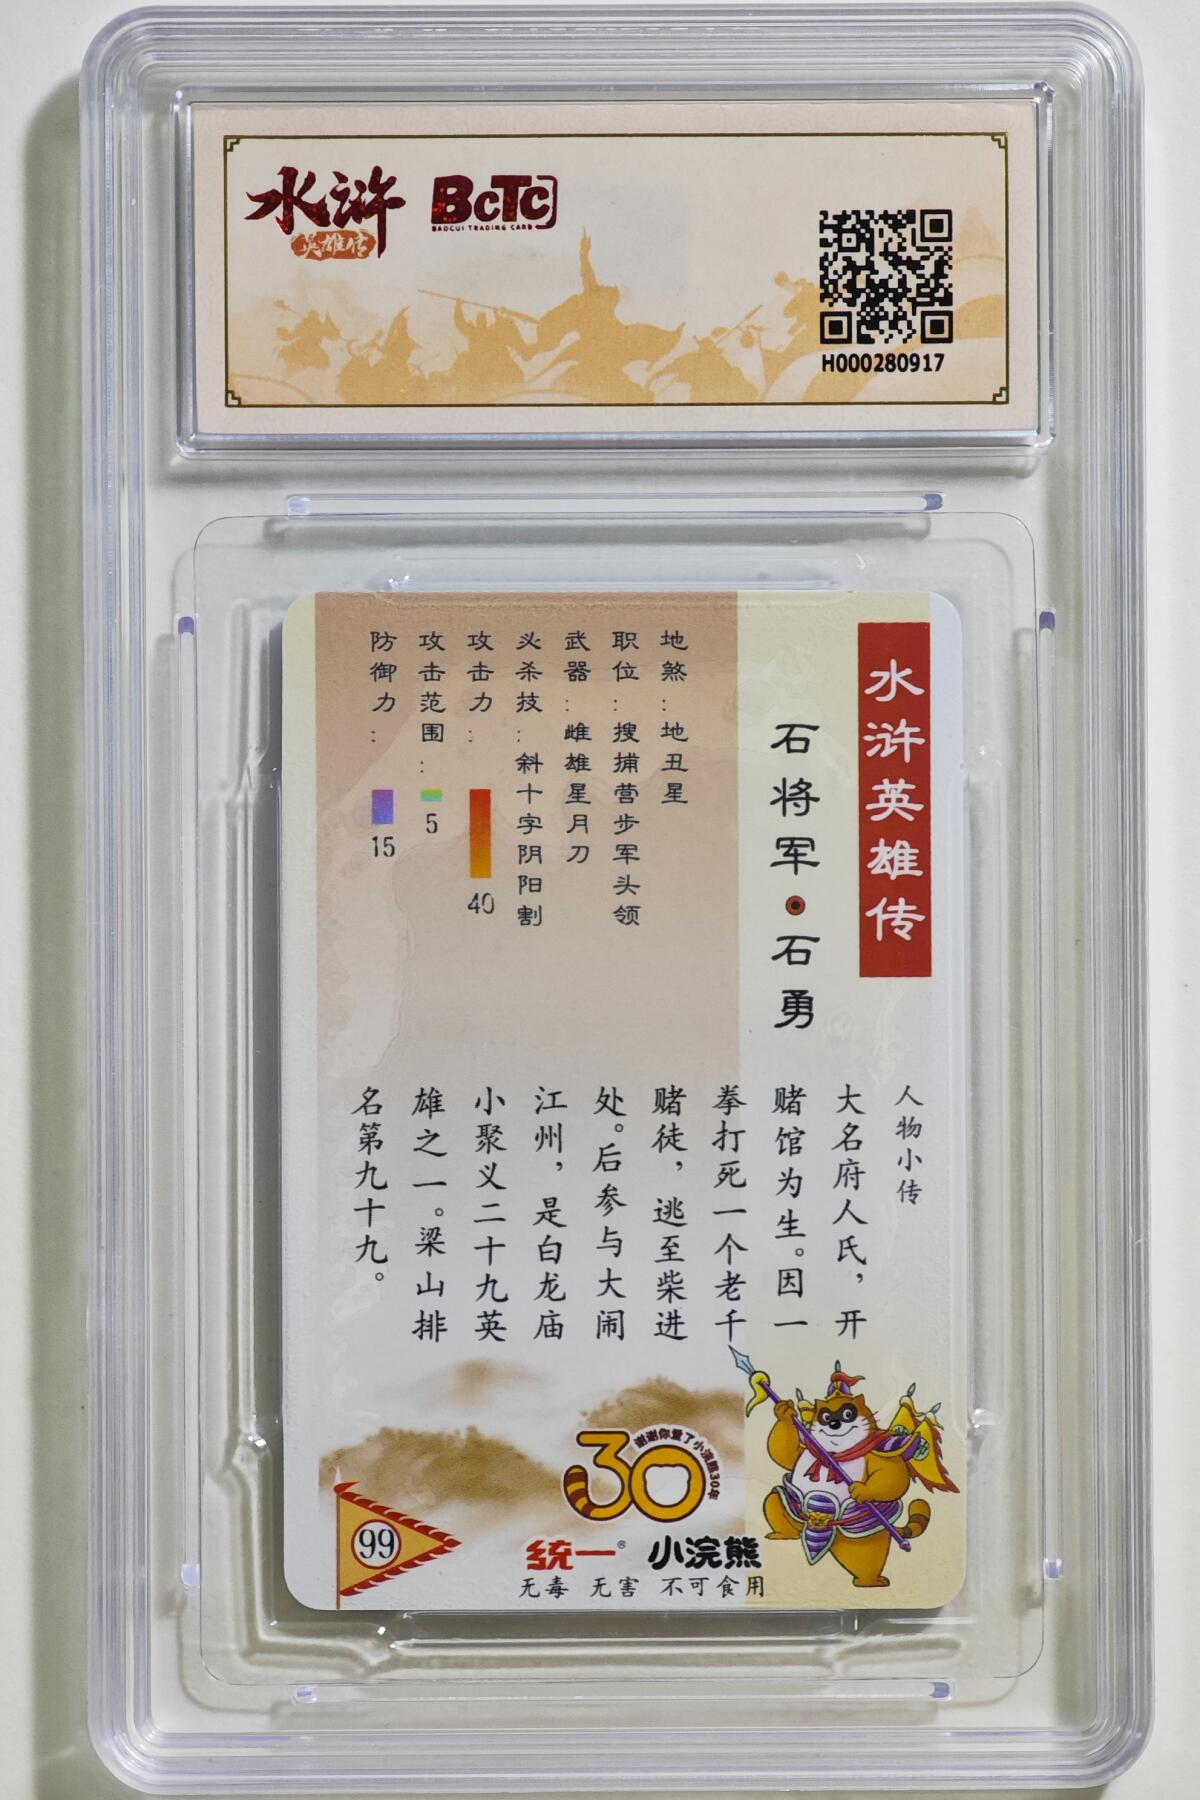 水浒
英雄传
BCTC
BAOCUI TRADING CARD
H000280917
水浒英雄传
石将军·石勇
地煞：地丑星
职位：搜捕营步军头领
武器：雌雄星月刀
必杀技：斜十字阴阳割
攻击力：40
攻击范围：5
防御力：15
人物小传
大名府人氏，开
赌馆为生。因一
拳打死一个老千
赌徒，逃至柴进
处。后参与大闹
江州，是白龙庙
小聚义二十九英
雄之一。梁山排
名第九十九。
30
谢谢你爱了小浣熊30年
99
统一® 小浣熊
无毒 无害 不可食用